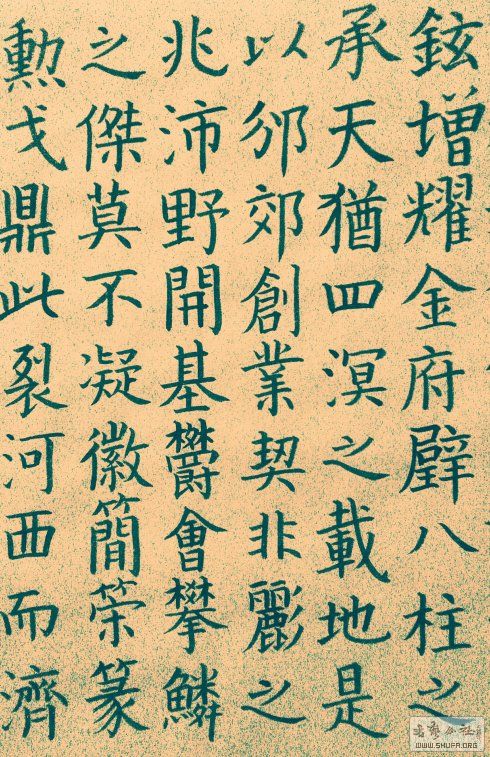 鉉增耀金府譬八柱之
承天猶四溟之載地是
以邠郊創業契非彲之
兆沛野開基鬱會攀鱗
之傑莫不凝徽簡策篆
勳戈鼎此裂河西而濟
WWW.SHUFA.ORG